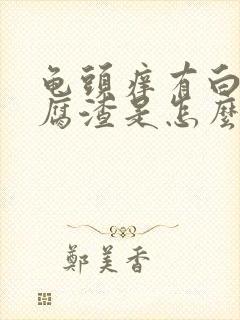 龟頭痒有白
腐渣是怎麼
鄭美香